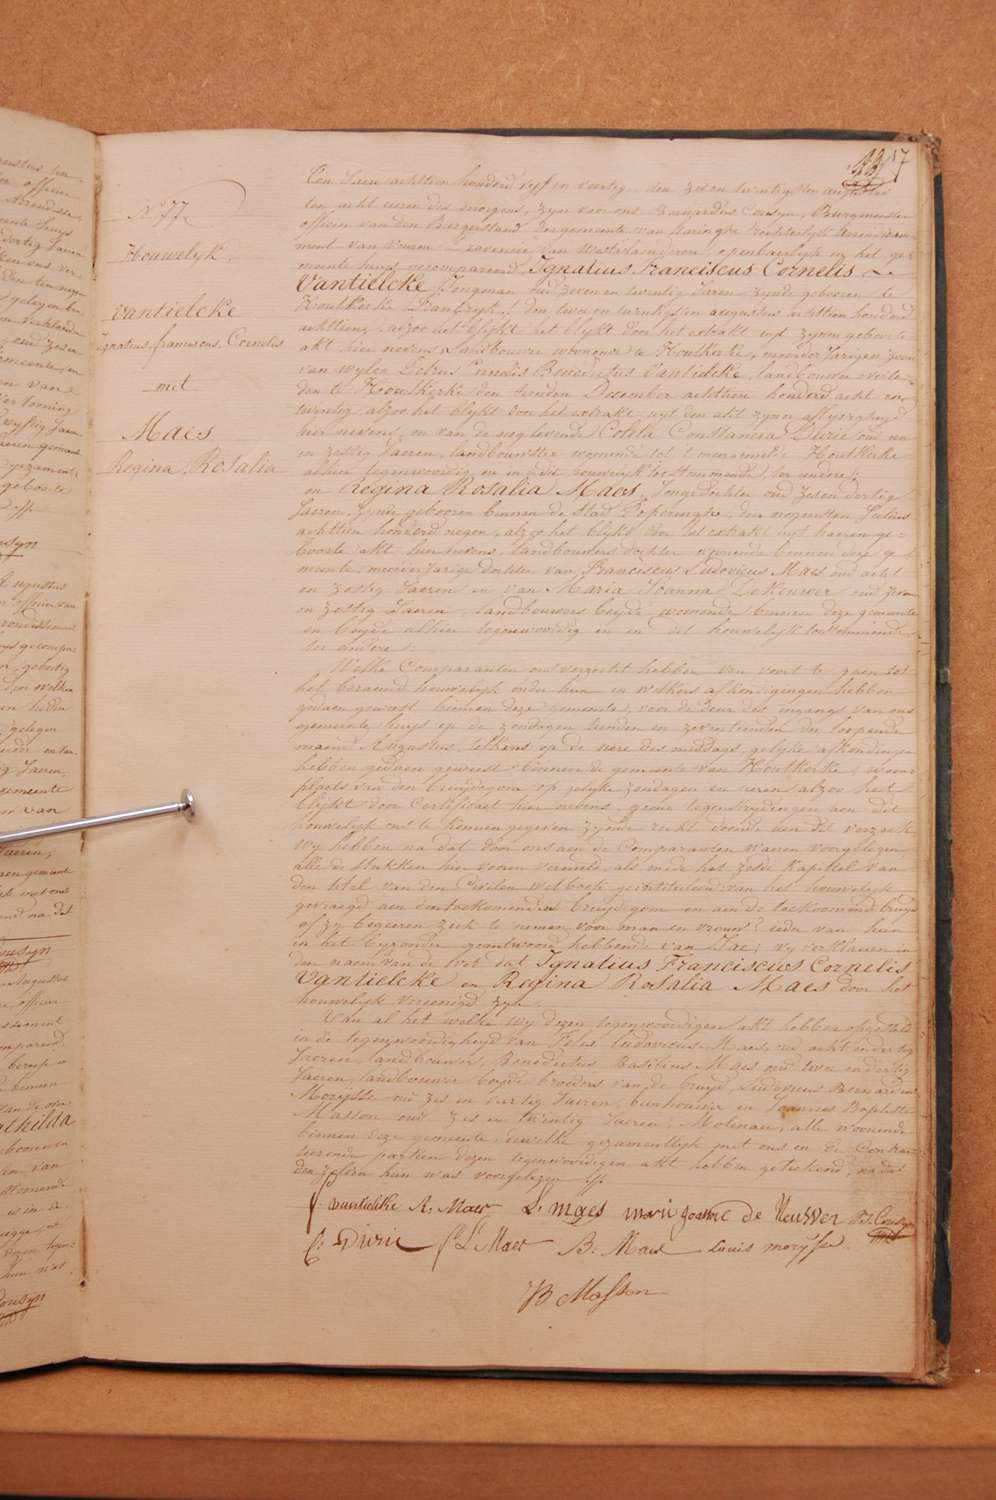 17
N° 77.
Houwelyk.
Vantielcke
Ignatius franciscus, Cornelis
met
Maes
Regina, Rosalia
Een Jaer achttien honderd vyf en veertig, den zes en twintigsten augustus
ten acht uren des morgens, zyn voor ons Bernardus Cousyn, Burgmeester
officier van den Burgerstand der gemeente van haringhe
ment van Veurne provincie van Westvlaenderen, openbaerlyk in het ge-
meente huys gecompareerd Ignatius Franciscus Cornelis
Vantielcke Jongman oud zeven en twintig Jaren, zynde geboren te
Houtkerke in Frankryk, den twee en twintigsten augustus achttien honderd
achttien, alzoo het blykt door het extrakt uyt zynen geboorte
akt hier nevens, landbouwer woonende te Houtkerke, meerderjarigen zoon
van wylen Petrus Benedictus Vantielcke, landbouwer overle-
den te Houtkerke den tienden December achttien honderd acht en
twintig, alzoo het blykt door het extrakt uyt den akt zynen aflyvigheyd
hier nevens, en van de nog levende Coleta Constancia Durie oud een
en zestig Jaeren, landbouwster woonende tot 't voornoemde Houtkerke
alhier tegenwoordig en in dit houwelyk toestemmende, ter andere;
en Regina Rosalia Maes, Jongedochter oud zes en dertig
Jaeren, zynde geboren binnen de stad Poperinghe, den negensten Julius
achttien honderd negen, alzoo het blykt door het extrakt uyt haeren ge-
boorte akt hier nevens, landbouwers dochter woonende binnen deze ge-
meente, meerderjarige dochter van Franciscus Ludovicus Maes oud acht
en zestig Jaeren en van Maria Joanna Dekeuwer oud zeven
en zestig Jaeren, landbouwers beyde woonende binnen deze gemeente
en beyde alhier tegenwoordig en in dit houwelyk toestemmende
ter andere;
Welke Comparanten ons verzocht hebben van voort te gaen tot
het beraemd houwelyk onder hun en welkers afkondigingen hebben
gedaen geweest binnen deze gemeente, voor de deur des ingangs van ons
gemeente huys op de zondagen tienden en zeventienden der loopende
maend Augustus, telkens op de uere des middags, gelyke afkondingen
hebben gedaen geweest binnen de gemeente van Houtkerke, woon-
plaets van den bruydegom op gelyke zondagen en ueren alzoo het
blykt door Certificaet hier nevens, geene tegenstrydingen aen dit
houwelyk ons te kennen gegeven zynde recht doende aen dit verzoek
Wy hebben na dat door ons aen de Comparanten waeren voorgelezen
alle de stukken hier voren vermeld, als mede het zesde kapittel van
den titel van den Civilen wetboek geintituleerd van het houwelyk
gevraegd aen den toekomenden bruydegom en aen de toekoomende bruyd
of zy begeeren zich te nemen voor man en vrouw? ieder van hun
in het byzonder geantwoord hebbende van Jae; wy verklaeren in
den naem van de wet dat Ignatius Franciscus Cornelis
Vantielcke en Regina Rosalia Maes door het
houwelyk vereenigd zyn.
Van al het welke wy dezen tegenwoordigen akt hebben opgesteld
in de tegenwoordigheyd van Felix Ludovicus Maes, oud acht en dertig
Jaeren landbouwer, Benedictus Basilius Maes oud twee en dertig
Jaeren, landbouwer beyde broeders van de bruyd, Ludovicus Bernardus
Morysse oud zes en dertig Jaeren, en Joannes Baptiste
Masson oud zes en twintig Jaeren, Molenaer, alle woonende
binnen deze gemeente, dewelke gezamentlyk met ons en de Contrac-
teerende partien dezen tegenwoordigen akt hebben geteekend, na dat
den zelven hun was voorgelezen
vantielcke R. Maes L. maes marie joanne de Keuwer B. Cousyn
C: Durie F L Maes B. Maes Louis morysse.
JB Masson